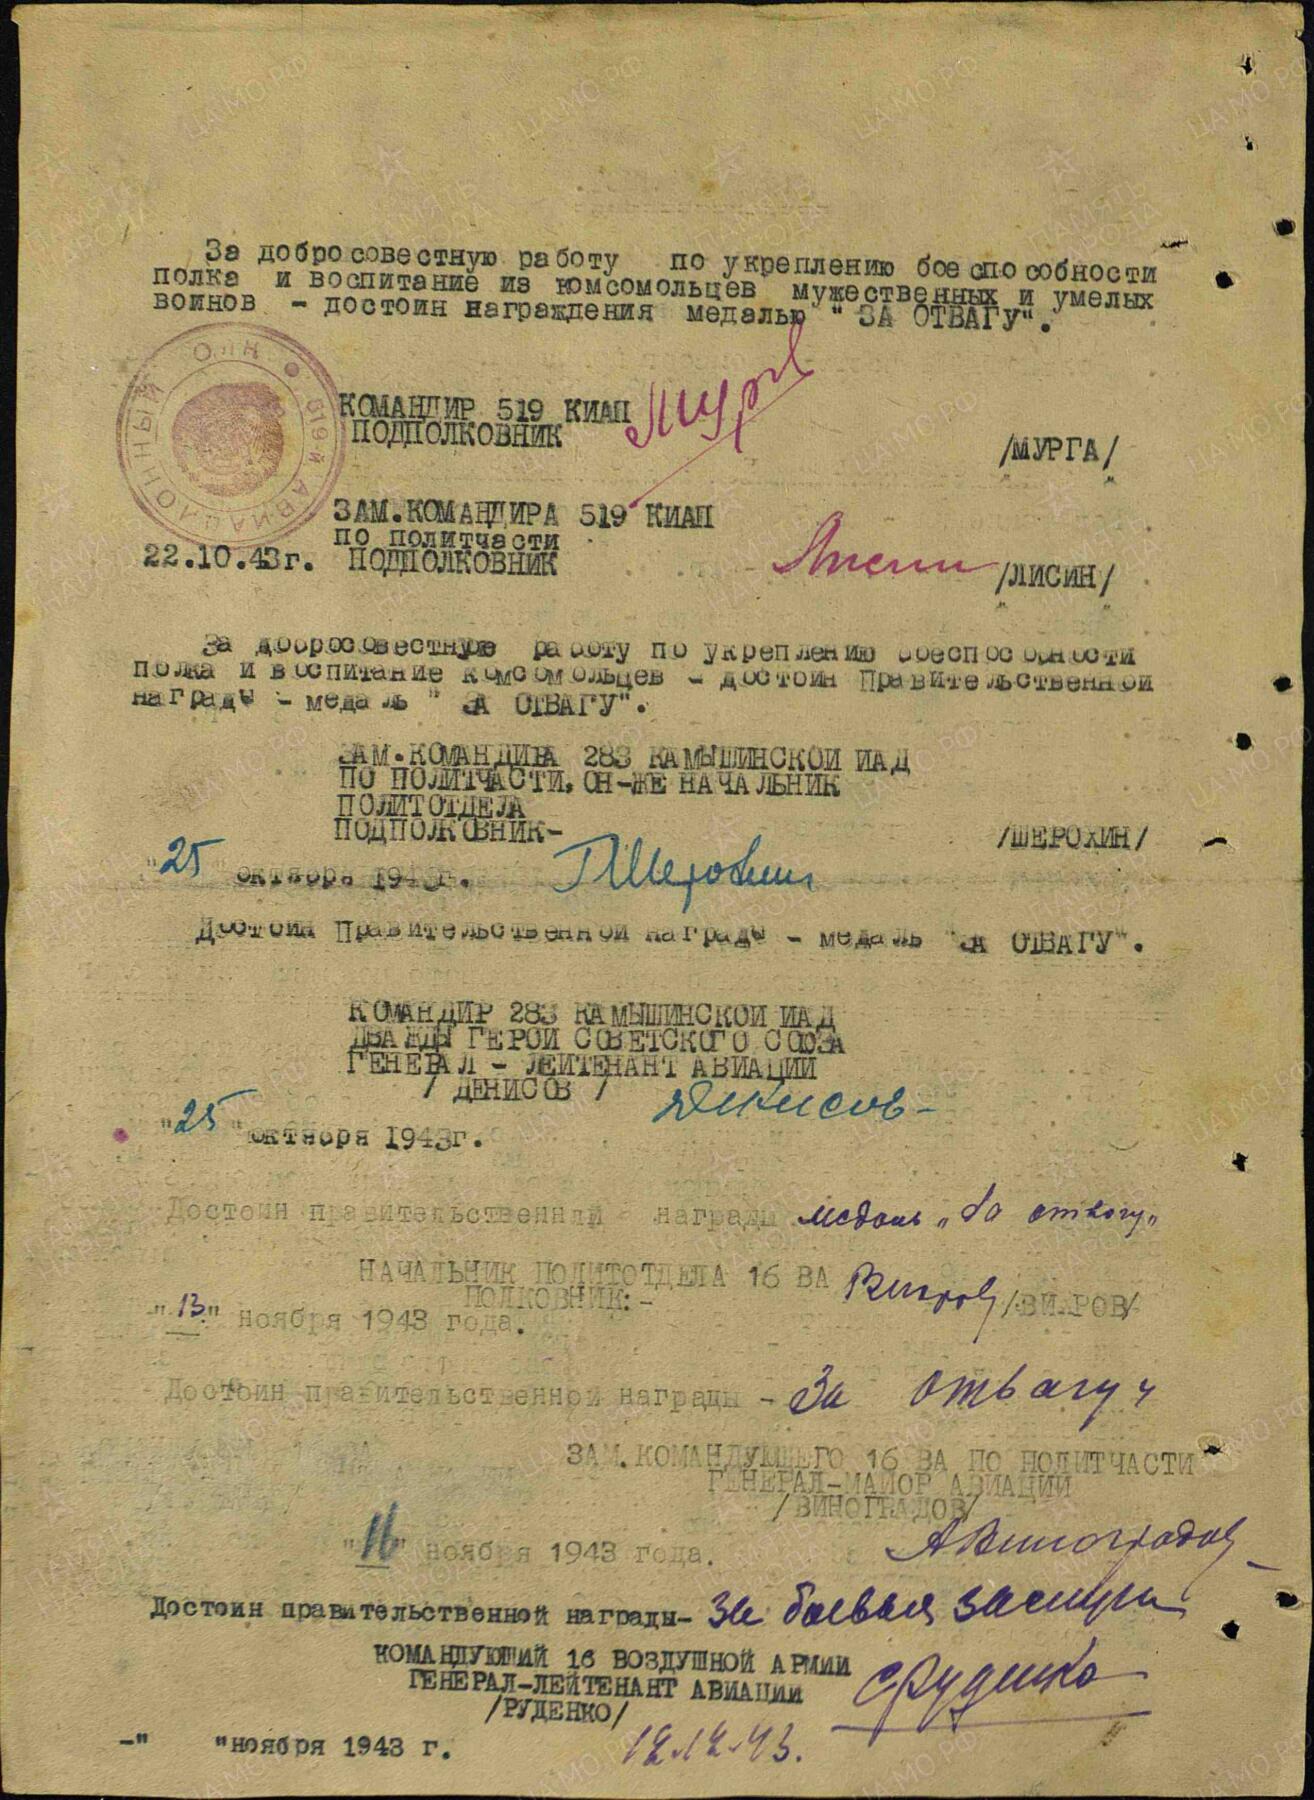 За добросовестную работу по укреплению боеспособности
полка и воспитание из комсомольцев мужественных и умелых
воинов - достоин награждения медалью "ЗА ОТВАГУ".
КОМАНДИР 519 КИАП
ПОДПОЛКОВНИК
/МУРГА/
ЗАМ.КОМАНДИРА 519 КИАП
по политчасти
22.10.43г. ПОДПОЛКОВНИК
/ЛИСИН/
За добросовестную работу по укреплению боеспособности
полка и воспитание комсомольцев - достоин Правительственной
награды - медаль "ЗА ОТВАГУ".
ЗАМ.КОМАНДИРА 283 КАМЫШИНСКОЙ ИАД
ПО ПОЛИТЧАСТИ, ОН-ЖЕ НАЧАЛЬНИК
ПОЛИТОТДЕЛА
ПОДПОЛКОВНИК-
/ШЕРОХИН/
"25" октября 1943г.
Достоин Правительственной награды - медаль "ЗА ОТВАГУ".
КОМАНДИР 283 КАМЫШИНСКОЙ ИАД
ДВАЖДЫ ГЕРОЙ СОВЕТСКОГО СОЮЗА
ГЕНЕРАЛ - ЛЕЙТЕНАНТ АВИАЦИИ
/ ДЕНИСОВ / Денисов
"25" октября 1943г.
Достоин правительственной награды медаль "За отвагу"
НАЧАЛЬНИК ПОЛИТОТДЕЛА 16 ВА
ПОЛКОВНИК:-
/ВИХРОВ/
"13" ноября 1943 года.
Достоин правительственной награды - За отвагу
ЗАМ.КОМАНДУЮЩЕГО 16 ВА ПО ПОЛИТЧАСТИ
ГЕНЕРАЛ-МАЙОР АВИАЦИИ
/ВИНОГРАДОВ/
АВиноградов
"16" ноября 1943 года.
Достоин правительственной награды- За боевые заслуги
КОМАНДУЮЩИЙ 16 ВОЗДУШНОЙ АРМИИ
ГЕНЕРАЛ-ЛЕЙТЕНАНТ АВИАЦИИ
/РУДЕНКО/
СРуденко
-" "ноября 1943 г. 12.12.43.